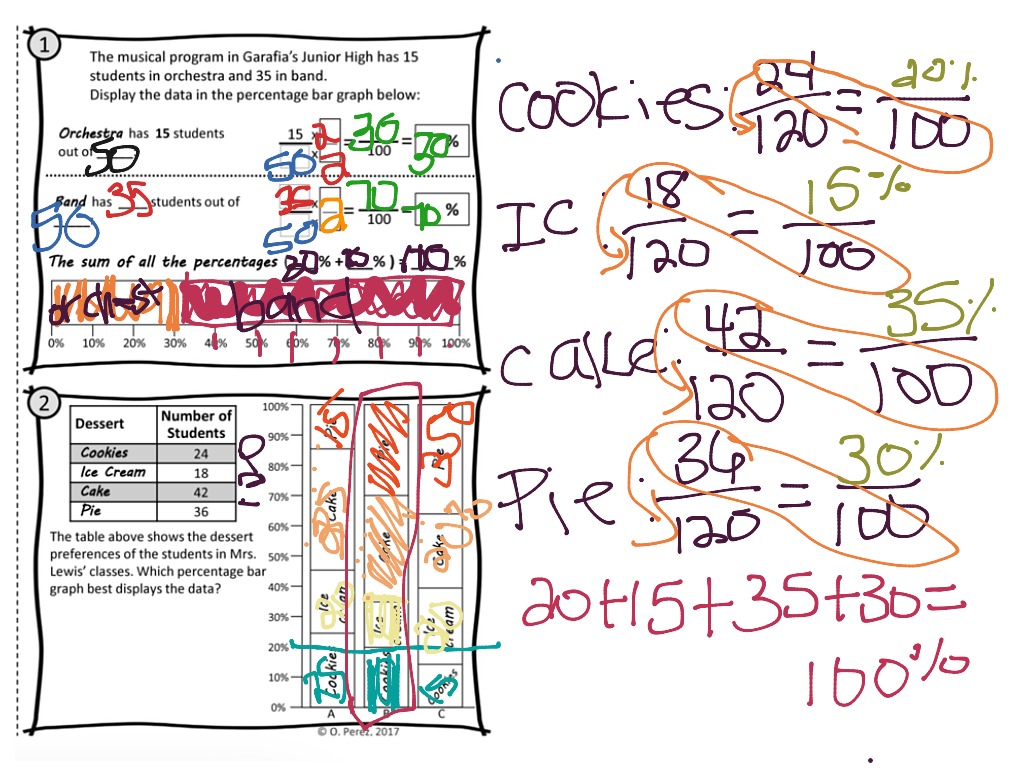 1
The musical program in Garafia's Junior High has 15
students in orchestra and 35 in band.
Display the data in the percentage bar graph below:
Orchestra has 15 students
out of 50
15 x 2 = 30 = 30 %
50 x 2 100
Band has 35 students out of
50
35 x 2 = 70 = 70 %
50 100
The sum of all the percentages ( % + % ) = 100 %
orchest band
0% 10% 20% 30% 40% 50% 60% 70% 80% 90% 100%
2
Dessert Number of Students
Cookies 24
Ice Cream 18
Cake 42
Pie 36
120
The table above shows the dessert
preferences of the students in Mrs.
Lewis' classes. Which percentage bar
graph best displays the data?
100%
90%
80%
70%
60%
50%
40%
30%
20%
10%
0%
Pie Pie Pie
Cake Cake Cake
Ice Cream Ice Ice Cream
Cookies Cookies Cookies
A B C
© O. Perez, 2017
Cookies: 24/120 = 20%/100
IC: 18/120 = 15%/100
cake: 42/120 = 35%/100
Pie: 36/120 = 30%/100
20+15+35+30=
100%